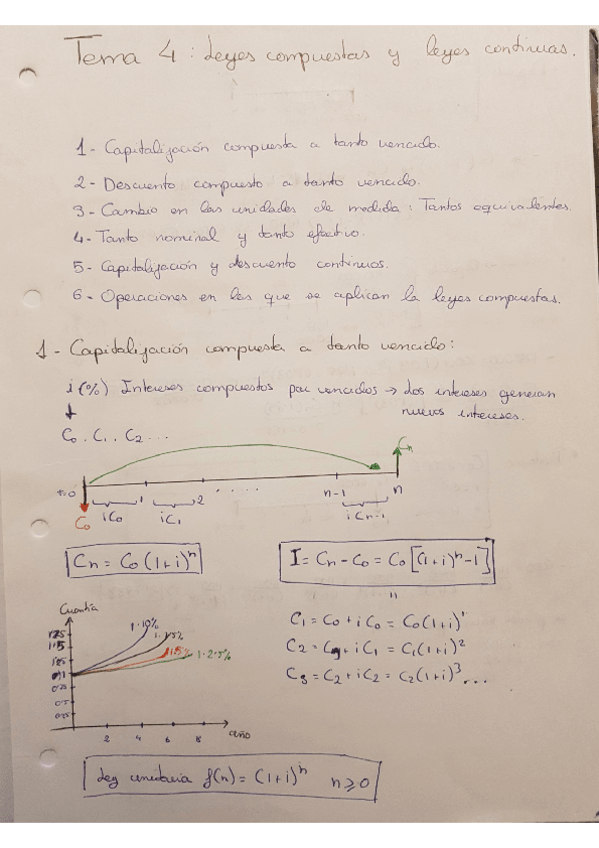 Tema 4: Leyes compuestas y leyes continuas.
1- Capitalización compuesta a tanto vencido.
2- Descuento compuesto a tanto vencido.
3- Cambio en las unidades de medida: Tantos equivalentes.
4- Tanto nominal y tanto efectivo.
5- Capitalización y descuento continuos.
6- Operaciones en las que se aplican la leyes compuestas.
1- Capitalización compuesta a tanto vencido:
i(%) Intereses compuestos por vencidos → los intereses generan
nuevos intereses.
↓
C₀, C₁, C₂ ...
Cn
n=0 1 2 ..... n-1 n
C₀ iC₀ iC₁ iCn-1
Cn = C₀(1+i)ⁿ
I = Cn - C₀ = C₀[(1+i)ⁿ-1]
C₁ = C₀ + iC₀ = C₀(1+i)¹
C₂ = C₁ + iC₁ = C₁(1+i)²
C₃ = C₂ + iC₂ = C₂(1+i)³...
Cuantía
2 4 6 8 año
Ley unitaria f(n) = (1+i)ⁿ n≥0